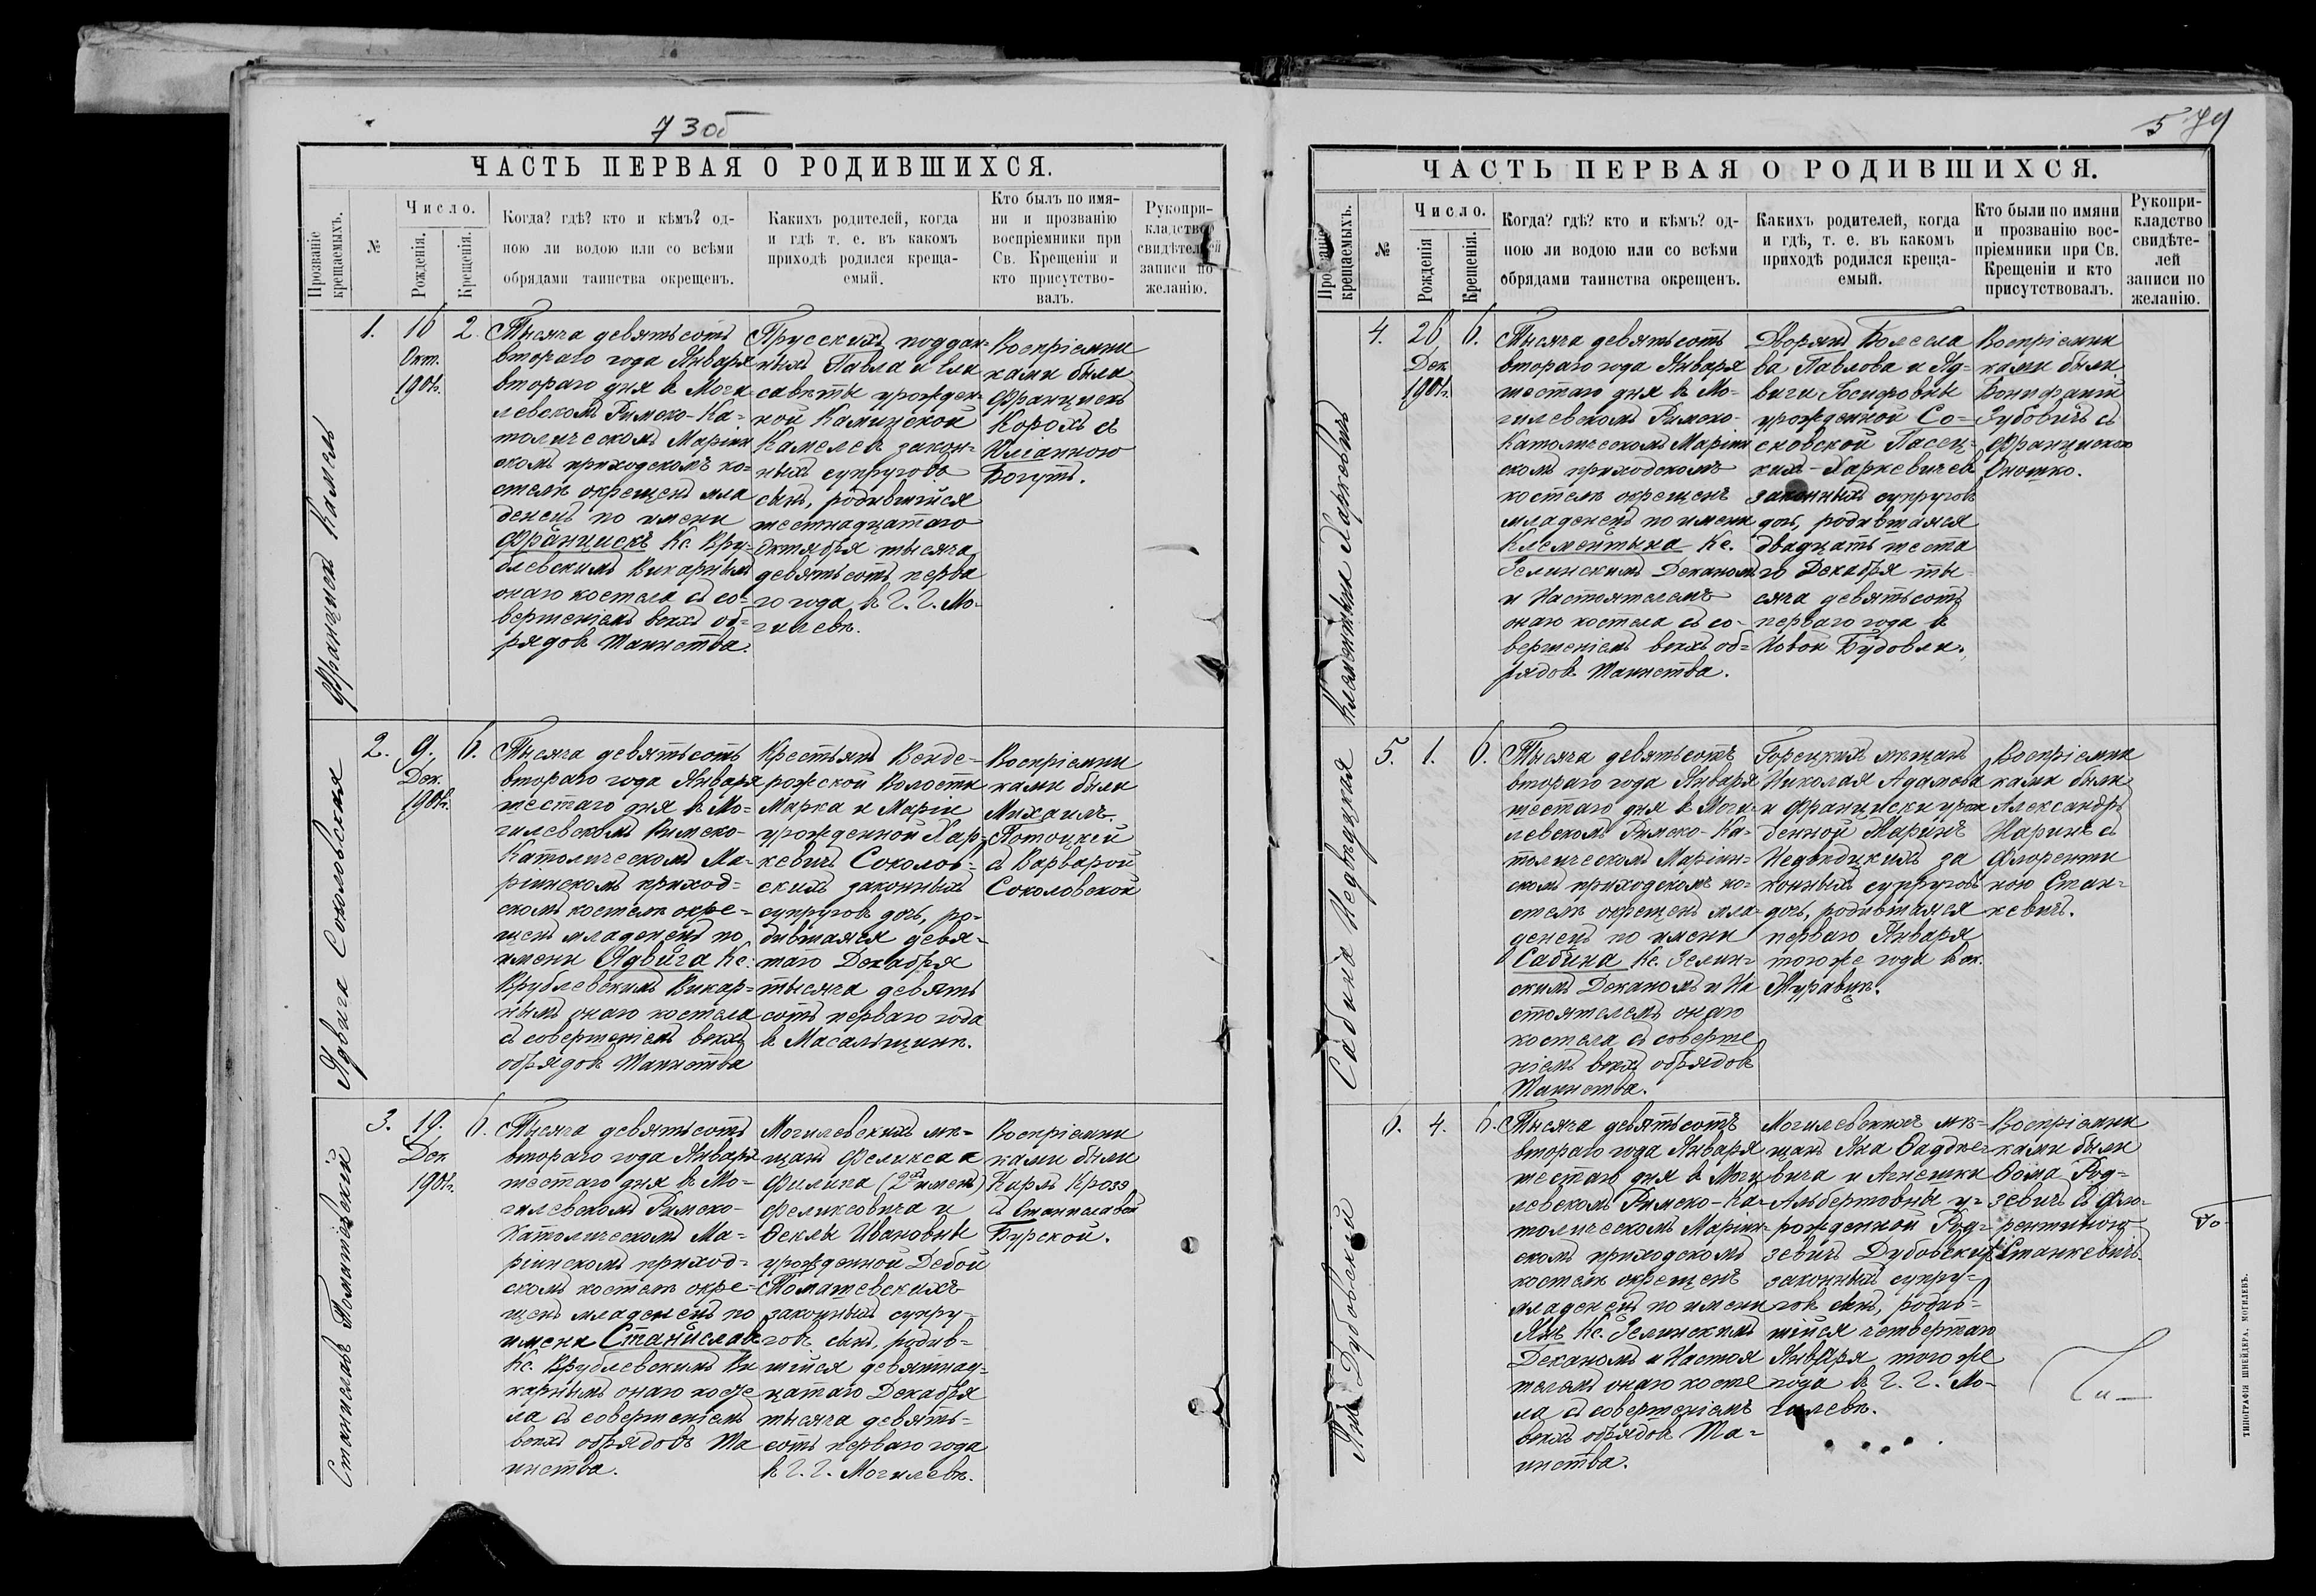 73об
ЧАСТЬ ПЕРВАЯ О РОДИВШИХСЯ.
Прозваніе крещаемыхъ.
№
Число.
Рожденія.
Крещенія.
Когда? гдѣ? кто и кѣмъ? од-
ною ли водою или со всѣми
обрядами таинства окрещенъ.
Какихъ родителей, когда
и гдѣ т. е. въ какомъ
приходѣ родился креща-
емый.
Кто былъ по имя-
ни и прозванію
воспріемники при
Св. Крещеніи и
кто присутство-
валъ.
Рукопри-
кладство
свидѣтелей
записи по
желанію.
Францискъ Камель
1.
16
Окт.
1901г.
2.
Тысяча девятьсотъ
втораго года Января
втораго дня въ Моги
левскомъ Римско-Ка-
толическомъ Маріин
скомъ приходскомъ ко-
стелѣ окрещенъ мла
денецъ по имени
Францискъ Кс. Вру-
блевскимъ Викарнымъ
онаго костела съ со-
вершеніемъ всѣхъ об-
рядовъ Таинства.
Прусскихъ поддан-
ныхъ Павла и Ели
саветы урожден-
ной Каминской
Камелевъ закон-
ныхъ супруговъ
сынъ, родившійся
шестнадцатаго
Октября тысяча
девятьсотъ перва
го года въ Г. Г. Мо-
гилевѣ.
Воспріемни
ками были
Францискъ
Корохъ съ
Юліанною
Богутъ.
Ядвига Соколовская
2.
9.
Дек.
1901г.
6.
Тысяча девятьсотъ
втораго года Января
шестаго дня въ Мо-
гилевскомъ Римско-
Католическомъ Ма-
ріинскомъ приход-
скомъ костелѣ окре-
щенъ младенецъ по
имени Ядвига Кс.
Врублевскимъ Викар-
нымъ онаго костела
съ совершеніемъ всѣхъ
обрядовъ Таинства
Крестьянъ Венде-
рожской Волости
Марка и Маріи
урожденной Хар-
кевичъ Соколов-
скихъ законныхъ
супруговъ дочь, ро-
дившаяся девя-
таго Декабря
тысяча девять
сотъ перваго года
въ Масальщинѣ.
Воспріемни
ками были
Михаилъ
Потоцкій
съ Варварой
Соколовской
Станиславъ Томашевскій
3.
19.
Дек.
1901г.
6.
Тысяча девятьсотъ
втораго года Января
шестаго дня въ Мо-
гилевскомъ Римско-
Католическомъ Ма-
ріинскомъ приход-
скомъ костелѣ окре-
щенъ младенецъ по
имени Станиславъ
Кс. Врублевскимъ Ви
карнымъ онаго косте
ла съ совершеніемъ
всѣхъ обрядовъ Та
инства.
Могилевскихъ мѣ-
щанъ Феликса а
Филипа (2хъ именъ)
Феликсовича и
Ѳеклы Ивановны
урожденной Дебой
Томашевскихъ
законныхъ супру-
говъ сынъ, родив-
шійся девятнад-
цатаго Декабря
тысяча девять-
сотъ перваго года
въ Г. Г. Могилевѣ.
Воспріемни
ками были
Карлъ Крозэ
съ Станиславой
Бурской.
5 74
ЧАСТЬ ПЕРВАЯ О РОДИВШИХСЯ.
Прозваніе крещаемыхъ.
№
Число.
Рожденія
Крещенія.
Когда? гдѣ? кто и кѣмъ? од-
ною ли водою или со всѣми
обрядами таинства окрещенъ.
Какихъ родителей, когда
и гдѣ, т. е. въ какомъ
приходѣ родился креща-
емый.
Кто были по имяни
и прозванію вос-
пріемники при Св.
Крещеніи и кто
присутствовалъ.
Рукопри-
кладство
свидѣте-
лей
записи по
желанію.
Клементина Харкевичъ
4.
26
Дек.
1901г.
6.
Тысяча девятьсотъ
втораго года Января
шестаго дня въ Мо-
гилевскомъ Римско-
Католическомъ Маріин
скомъ приходскомъ
костелѣ окрещенъ
младенецъ по имени
Клементина Кс.
Зелинскимъ Деканомъ
и Настоятелемъ
онаго костела съ со-
вершеніемъ всѣхъ об-
рядовъ Таинства.
Дворянъ Болесла
ва Павлова и Яд-
виги Іосифовны
урожденной Со-
сновской Пасец-
кихъ-Харкевичевъ
законныхъ супруговъ
дочь, родившаяся
двадцать шеста
го Декабря ты-
сяча девятьсотъ
перваго года въ
Новой Будовлѣ.
Воспріемни
ками были
Бонифатій
Зубовичъ съ
Францискою
Онюшко.
Сабина Недзвѣдзкая
5.
1.
6.
Тысяча девятьсотъ
втораго года Января
шестаго дня въ Моги-
левскомъ Римско-Ка-
толическомъ Маріин-
скомъ приходскомъ ко-
стелѣ окрещенъ мла-
денецъ по имени
Сабина Кс. Зелин-
скимъ Деканомъ и На
стоятелемъ онаго
костела съ соверше
ніемъ всѣхъ обрядовъ
Таинства.
Горецкихъ мѣщанъ
Николая Адамова
и Франциски урож
денной Маринъ
за
конныхъ супруговъ
дочь, родившаяся
перваго Января
того же года въ ок.
Журавцѣ.
Воспріемни
ками были
Александръ
Маринъ съ
Флоренти
ною Стан-
кевичъ.
Янъ Дубовскій
6.
4.
6.
Тысяча девятьсотъ
втораго года Января
шестаго дня въ Моги
левскомъ Римско-Ка-
толическомъ Маріин-
скомъ приходскомъ
костелѣ окрещенъ
младенецъ по имени
Янъ Кс. Зелинскимъ
Деканомъ и Настоя
телемъ онаго косте
ла съ совершеніемъ
всѣхъ обрядовъ Та-
инства.
Могилевскихъ мѣ-
щанъ Яна Ѳаддѣе-
вича и Агнешки
Альбертовны у-
рожденной Род-
зевичъ Дубовскихъ
законныхъ супру-
говъ сынъ, родив-
шійся четвертаго
Января того же
года въ Г. Г. Мо-
гилевѣ.
Воспріемни
ками были
Ѳома Род-
зевичъ съ Фло-
рентиною
Станкевичъ.
ТИПОГРАФІЯ ШНЕЙДЕРА, МОГИЛЕВЪ.